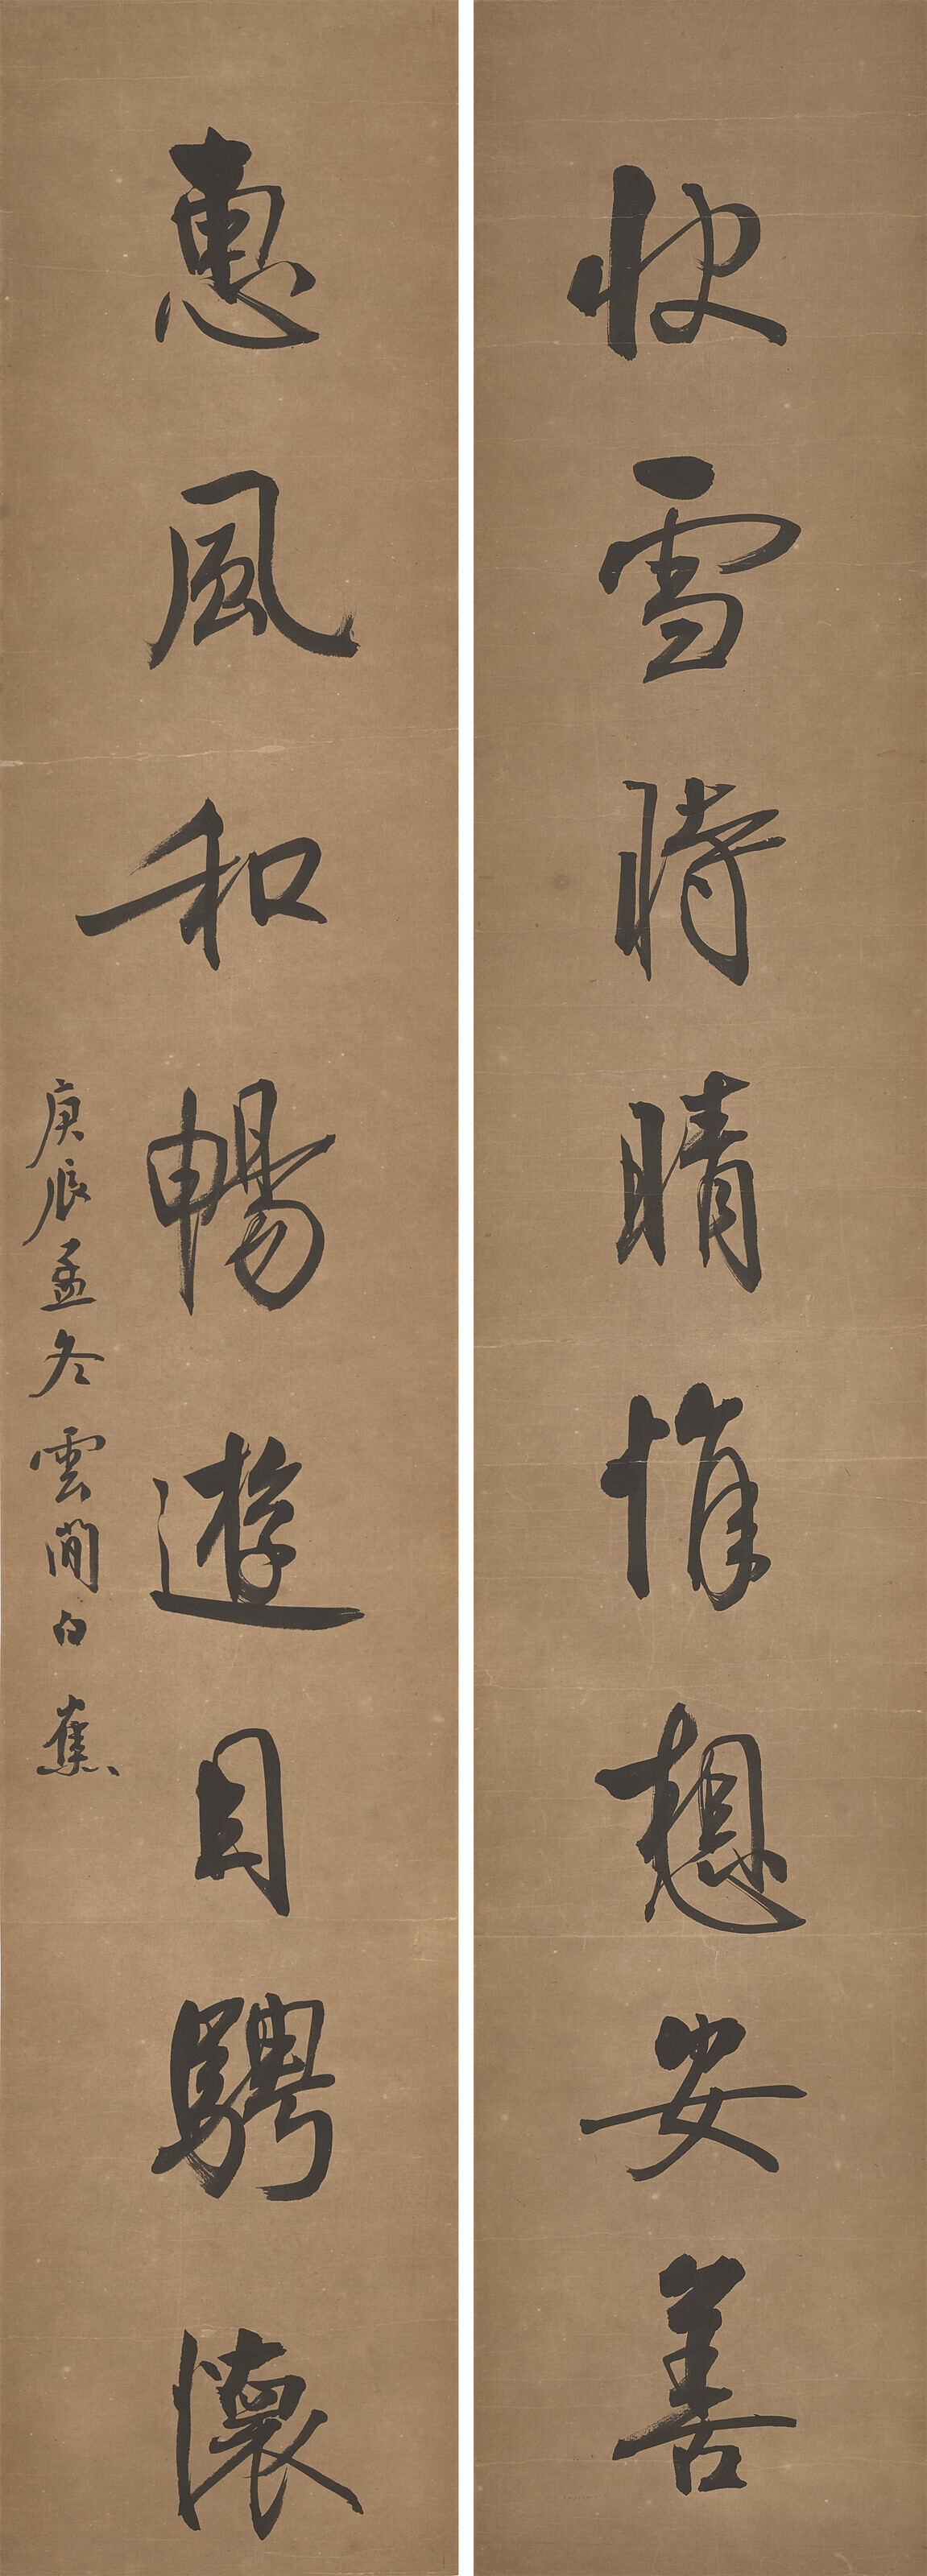 快雪時晴想安善
惠風和暢遊目騁懷
庚辰孟冬雲間白蕉